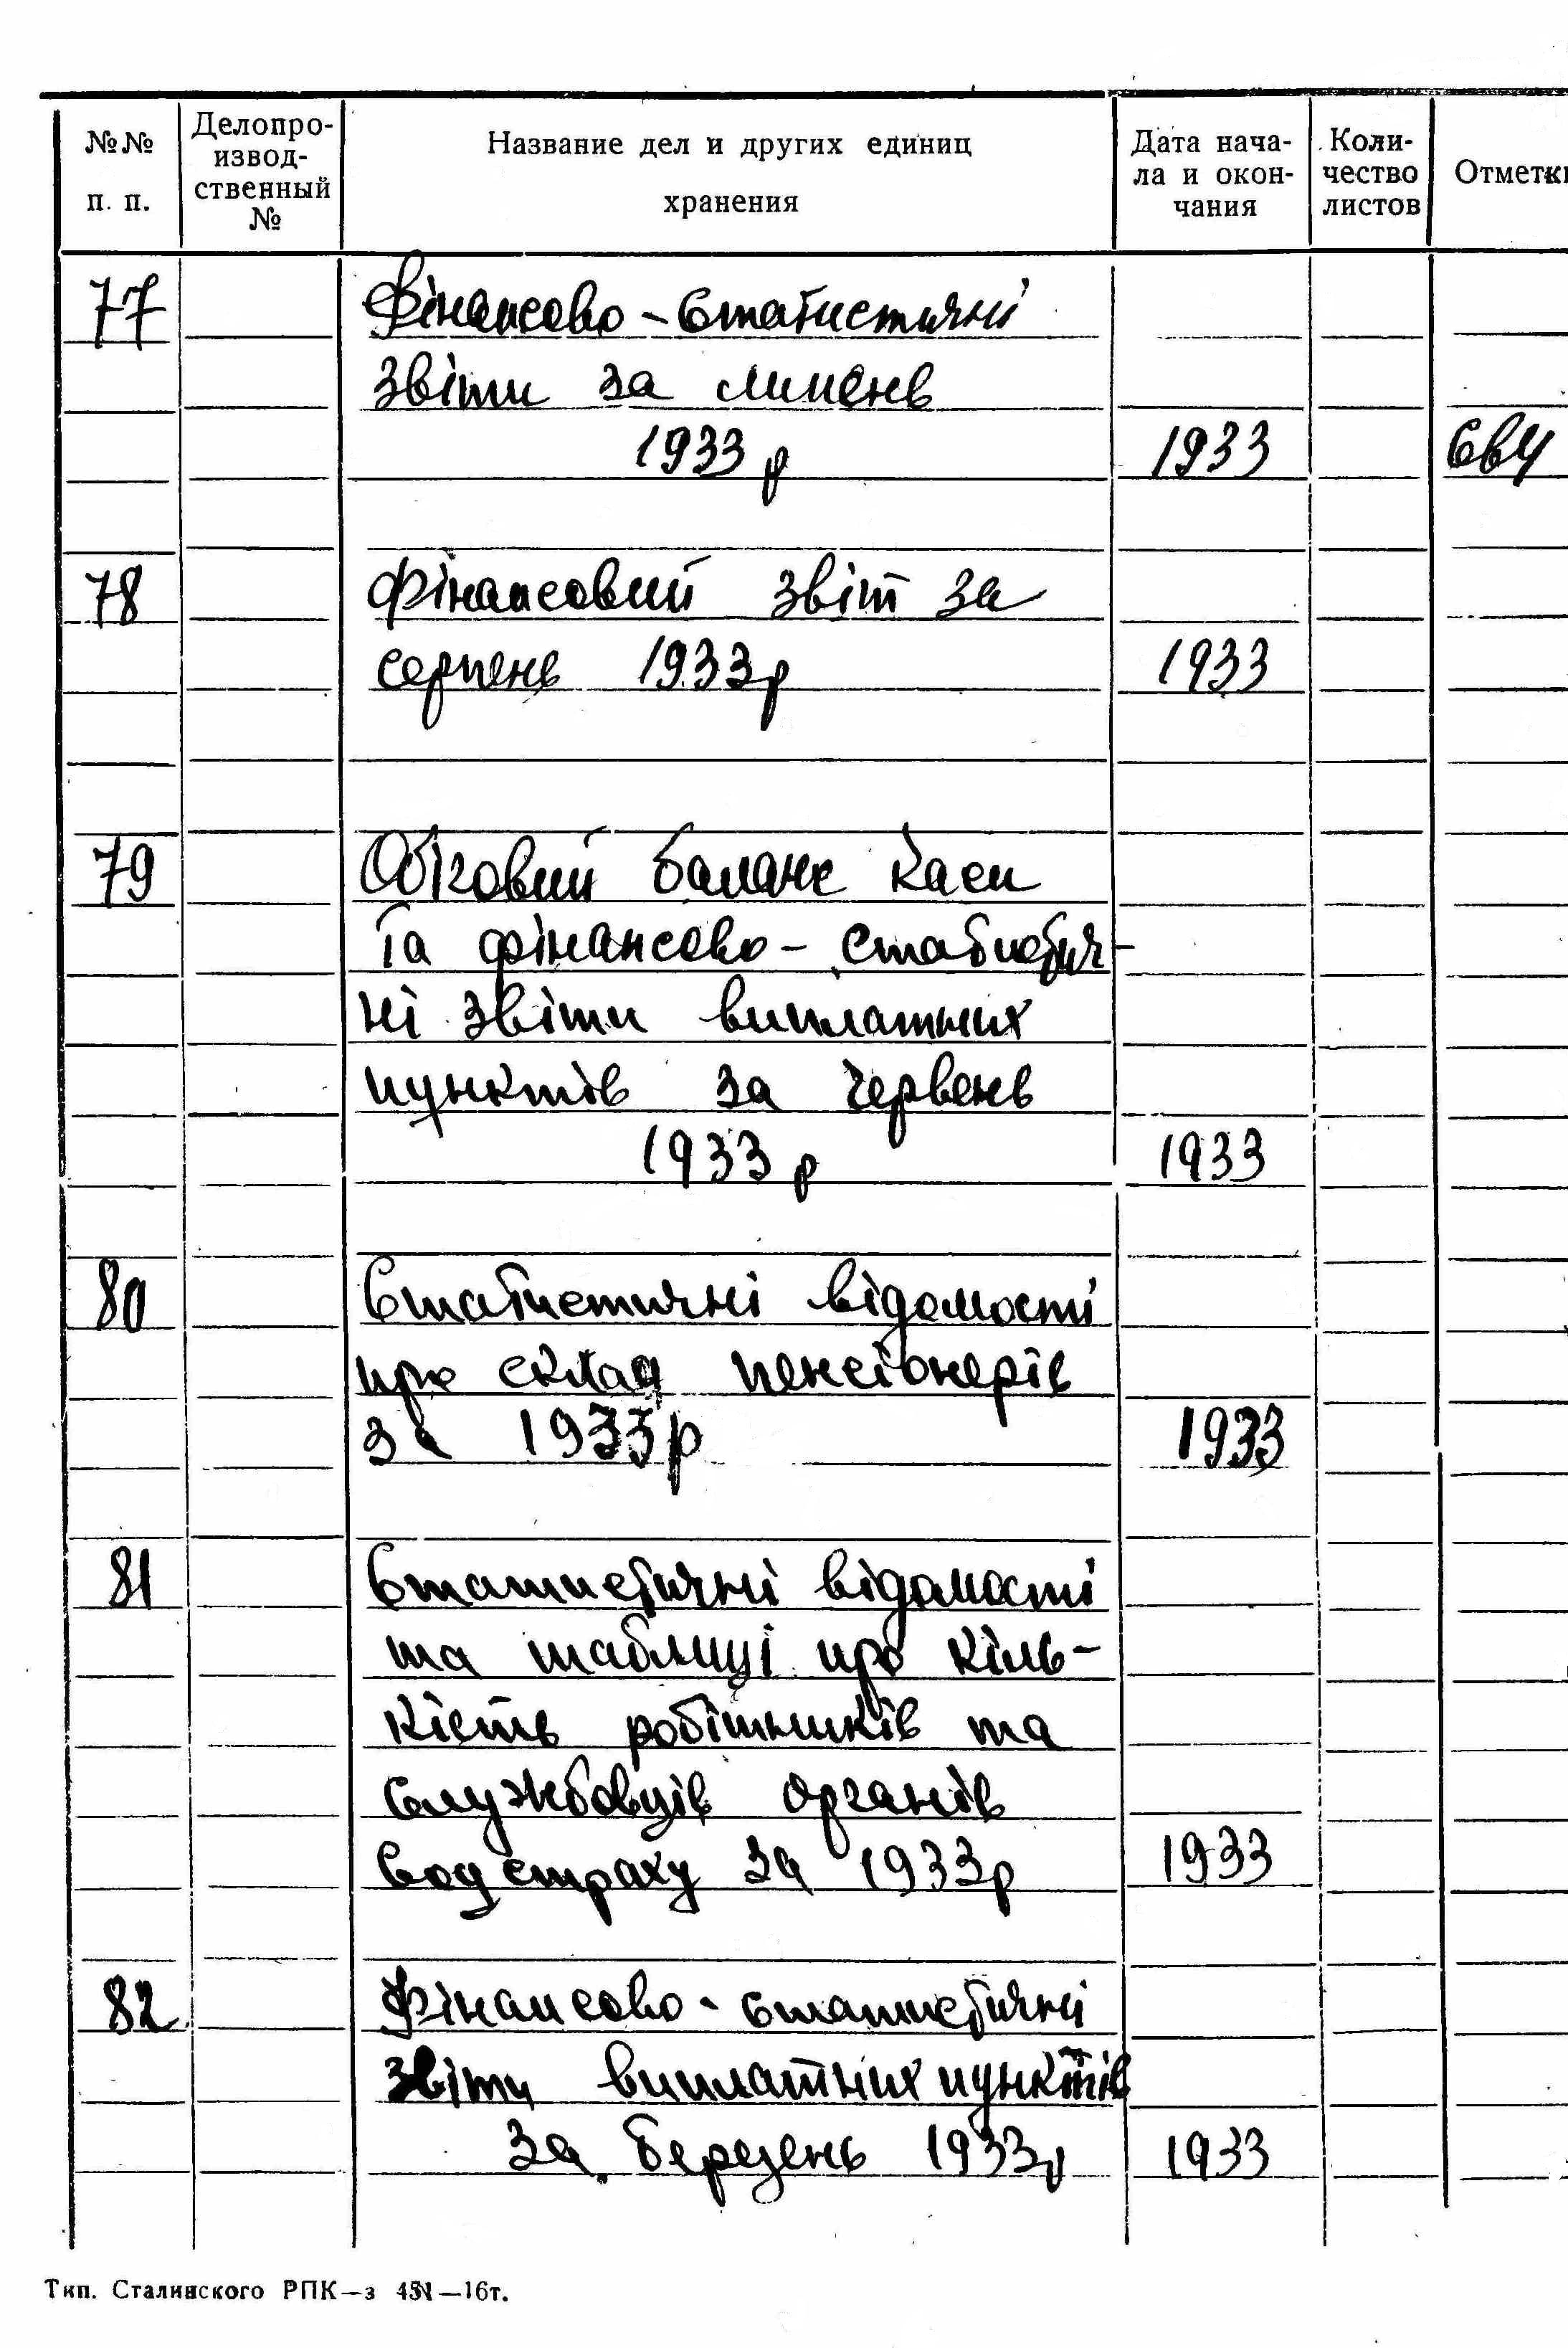 №№ п. п.
Делопро-
извод-
ственный
№
Название дел и других единиц
хранения
Дата нача-
ла и окон-
чания
Коли-
чество
листов
Отметки
77
Фінансово - статистичні
звіти за липень
1933 р
1933
78
Фінансовий звіт за
серпень 1933 р
1933
79
Обіговий баланс каси
та фінансово - статистич-
ні звіти виплатних
пунктів за червень
1933 р
1933
80
Статистичні відомості
про склад пенсіонерів
за 1933 р
1933
81
Статистичні відомості
та таблиці про кіль-
кість робітників та
службовців органів
соцстраху за 1933 р
1933
82
Фінансово - статистичні
звіти виплатних пунктів
за березень 1933 р
1933
Тип. Сталинского РПК—з 451—16т.